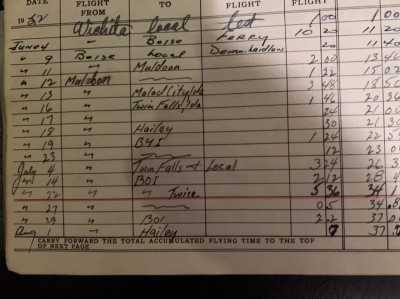 DATE FLIGHT FROM FLIGHT TO
1952 Wichita Local Test 1 00 1 00
June 7 " Boise Ferry 10 20 11 20
" 9 Boise Local 20 11 40
" 11 " Muldoon 2 00 13 40
" 12 Muldoon 1 22 15 02
" 13 " Malad City Ida 3 48 18 50
" 16 " Twin Falls, Ida 1 46 20 36
" 17 " 24 21 00
" 18 " Hailey 30 21 30
" 19 " BYI 1 24 22 54
" 23 " 12 23 0
July 4 " Twin Falls + Local 3 24 26 3
" 14 " BOI 2 12 28 4
" 22 " " Twice 5 36 34 1
" 27 " 0 5 34.
" 29 " BOI 2 2 37 0
Aug 1 " Hailey 7 37.
CARRY FORWARD THE TOTAL ACCUMULATED FLYING TIME TO THE TOP
OF NEXT PAGE